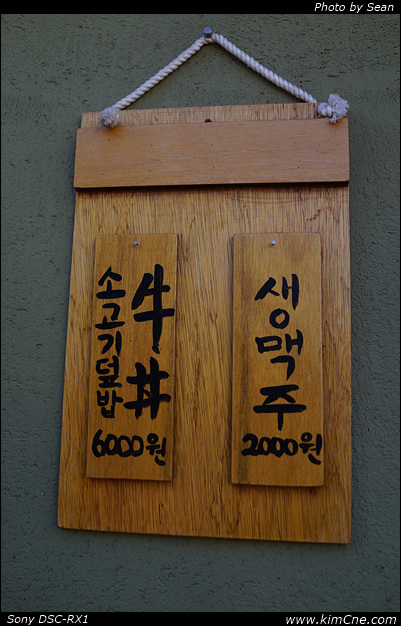 Photo by Sean
牛丼
소고기덮밥
6000원
생맥주
2000원
Sony DSC-RX1
www.kimCne.com